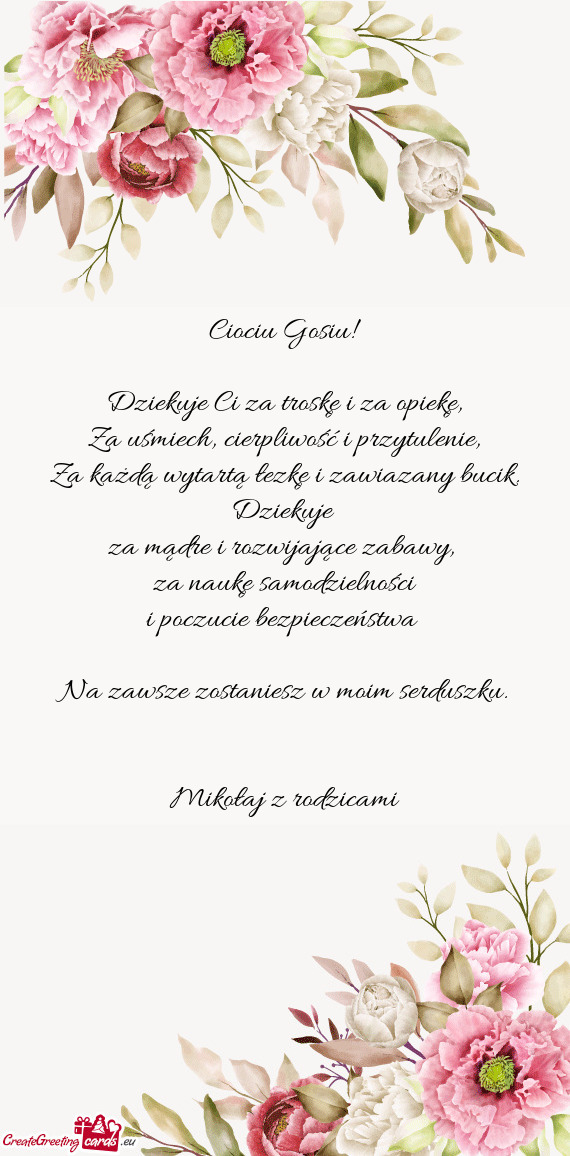 Ciociu Gosiu!
Dziekuje Ci za troskę i za opiekę,
Za uśmiech, cierpliwość i przytulenie,
Za każdą wytartą łezkę i zawiazany bucik.
Dziekuje
za mądre i rozwijające zabawy,
za naukę samodzielności
i poczucie bezpieczeństwa
Na zawsze zostaniesz w moim serduszku.
Mikołaj z rodzicami
CreateGreeting cards .eu